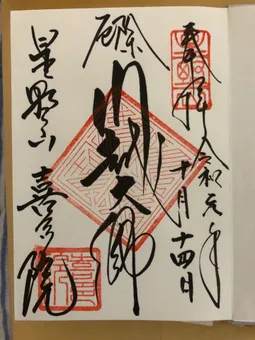 奉拝
令和元年
十月十四日
厄除
川越大師
星野山 喜多院